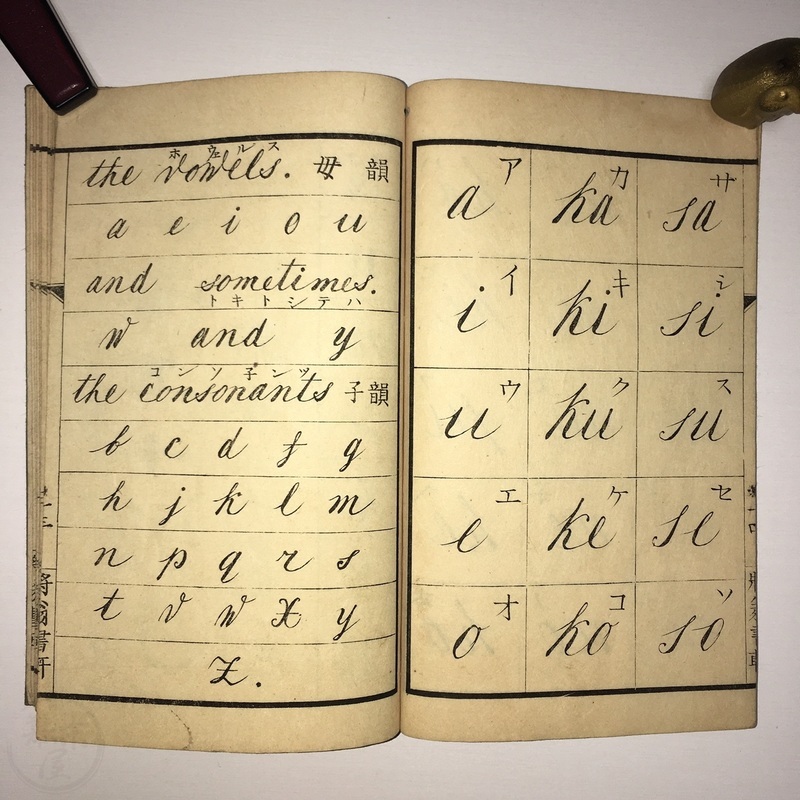 ホウェルス
the vowels. 母韻
a e i o u
and sometimes.
トキトシテハ
w and y
コンソ子ンツ
the consonants 子韻
b c d f g
h j k l m
n p q r s
t v w x y
z.
ア カ サ
a ka sa
イ キ シ
i ki si
ウ ク ス
u ku su
エ ケ セ
e ke se
オ コ ソ
o ko so